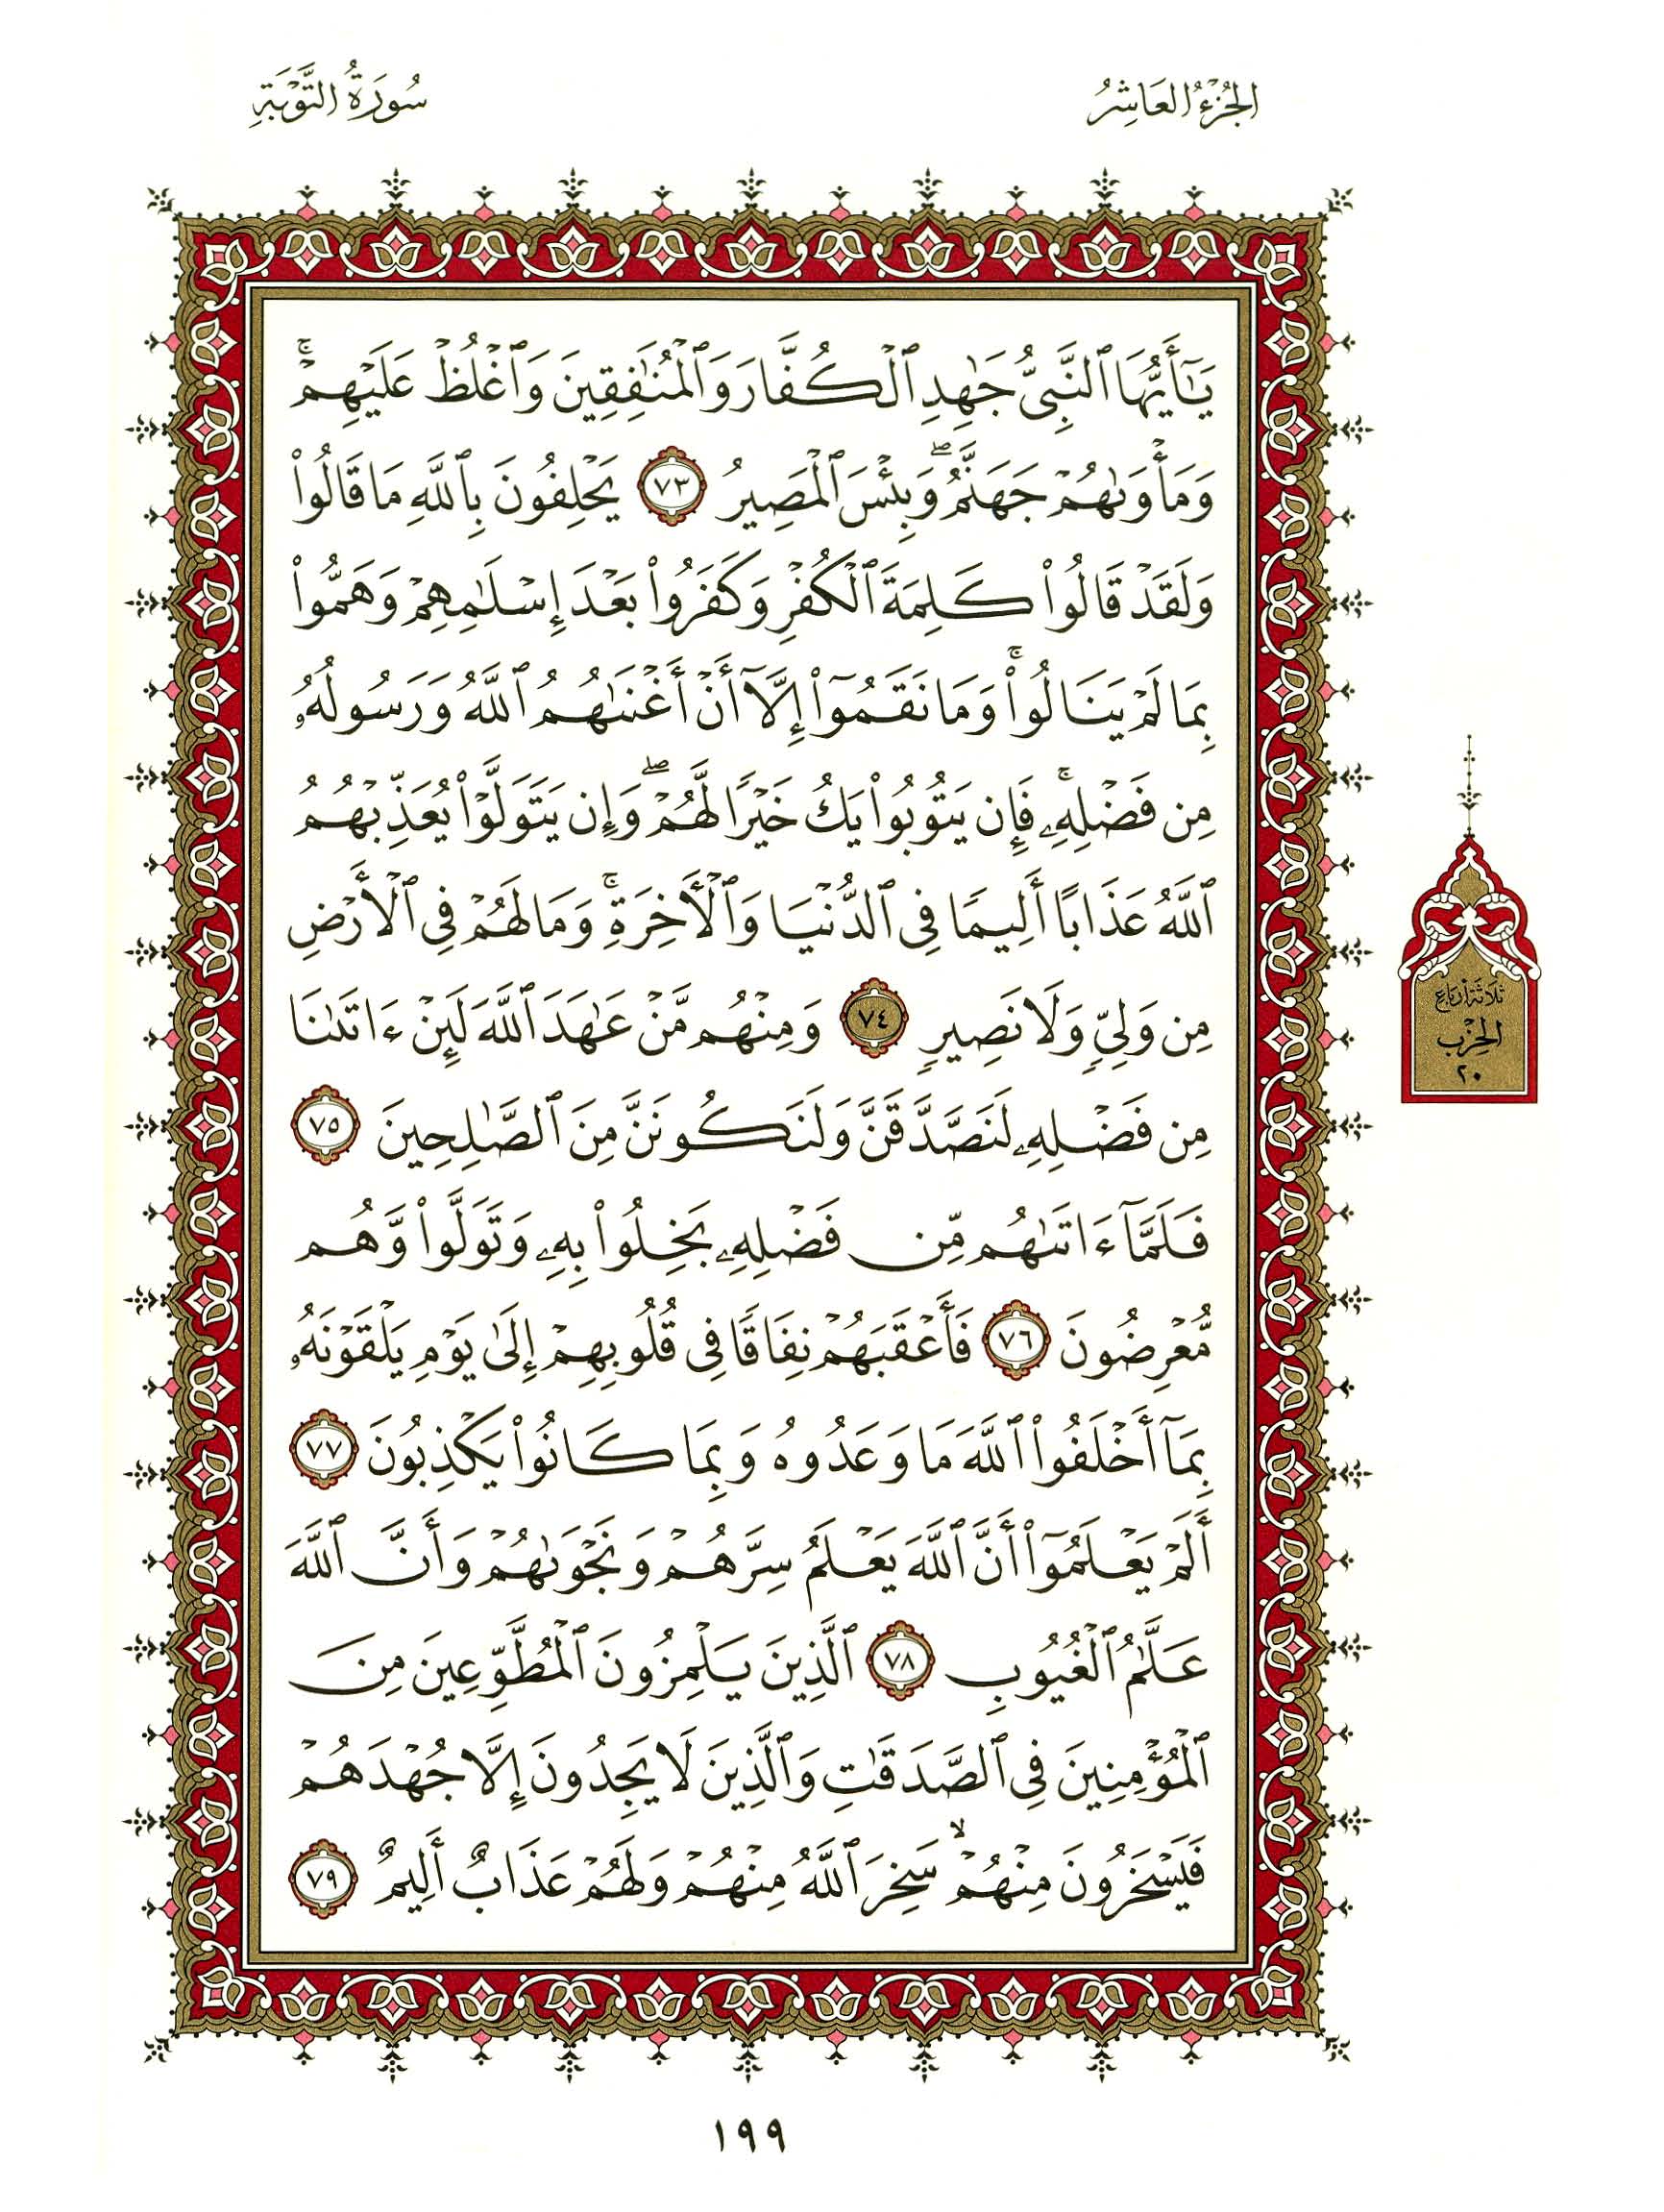 الجُزْءُ العَاشِرُ
سُورَةُ التَّوْبَةِ
يَٰٓأَيُّهَا ٱلنَّبِىُّ جَٰهِدِ ٱلْكُفَّارَ وَٱلْمُنَٰفِقِينَ وَٱغْلُظْ عَلَيْهِمْۚ
وَمَأْوَىٰهُمْ جَهَنَّمُۖ وَبِئْسَ ٱلْمَصِيرُ ٧٣ يَحْلِفُونَ بِٱللَّهِ مَا قَالُوا۟
وَلَقَدْ قَالُوا۟ كَلِمَةَ ٱلْكُفْرِ وَكَفَرُوا۟ بَعْدَ إِسْلَٰمِهِمْ وَهَمُّوا۟
بِمَا لَمْ يَنَالُوا۟ۚ وَمَا نَقَمُوٓا۟ إِلَّآ أَنْ أَغْنَىٰهُمُ ٱللَّهُ وَرَسُولُهُۥ
مِن فَضْلِهِۦۚ فَإِن يَتُوبُوا۟ يَكُ خَيْرًا لَّهُمْۖ وَإِن يَتَوَلَّوْا۟ يُعَذِّبْهُمُ
ٱللَّهُ عَذَابًا أَلِيمًا فِى ٱلدُّنْيَا وَٱلْأَخِرَةِۚ وَمَا لَهُمْ فِى ٱلْأَرْضِ
مِن وَلِىٍّ وَلَا نَصِيرٍ ٧٤ وَمِنْهُم مَّنْ عَٰهَدَ ٱللَّهَ لَئِنْ ءَاتَىٰنَا
مِن فَضْلِهِۦ لَنَصَّدَّقَنَّ وَلَنَكُونَنَّ مِنَ ٱلصَّٰلِحِينَ ٧٥
فَلَمَّآ ءَاتَىٰهُم مِّن فَضْلِهِۦ بَخِلُوا۟ بِهِۦ وَتَوَلَّوا۟ وَّهُم
مُّعْرِضُونَ ٧٦ فَأَعْقَبَهُمْ نِفَاقًا فِى قُلُوبِهِمْ إِلَىٰ يَوْمِ يَلْقَوْنَهُۥ
بِمَآ أَخْلَفُوا۟ ٱللَّهَ مَا وَعَدُوهُ وَبِمَا كَانُوا۟ يَكْذِبُونَ ٧٧
أَلَمْ يَعْلَمُوٓا۟ أَنَّ ٱللَّهَ يَعْلَمُ سِرَّهُمْ وَنَجْوَىٰهُمْ وَأَنَّ ٱللَّهَ
عَلَّٰمُ ٱلْغُيُوبِ ٧٨ ٱلَّذِينَ يَلْمِزُونَ ٱلْمُطَّوِّعِينَ مِنَ
ٱلْمُؤْمِنِينَ فِى ٱلصَّدَقَٰتِ وَٱلَّذِينَ لَا يَجِدُونَ إِلَّا جُهْدَهُمْ
فَيَسْخَرُونَ مِنْهُمْۙ سَخِرَ ٱللَّهُ مِنْهُمْ وَلَهُمْ عَذَابٌ أَلِيمٌ ٧٩
ثَلَاثَة أَرْبَاع
الحِزْب
٢٠
١٩٩